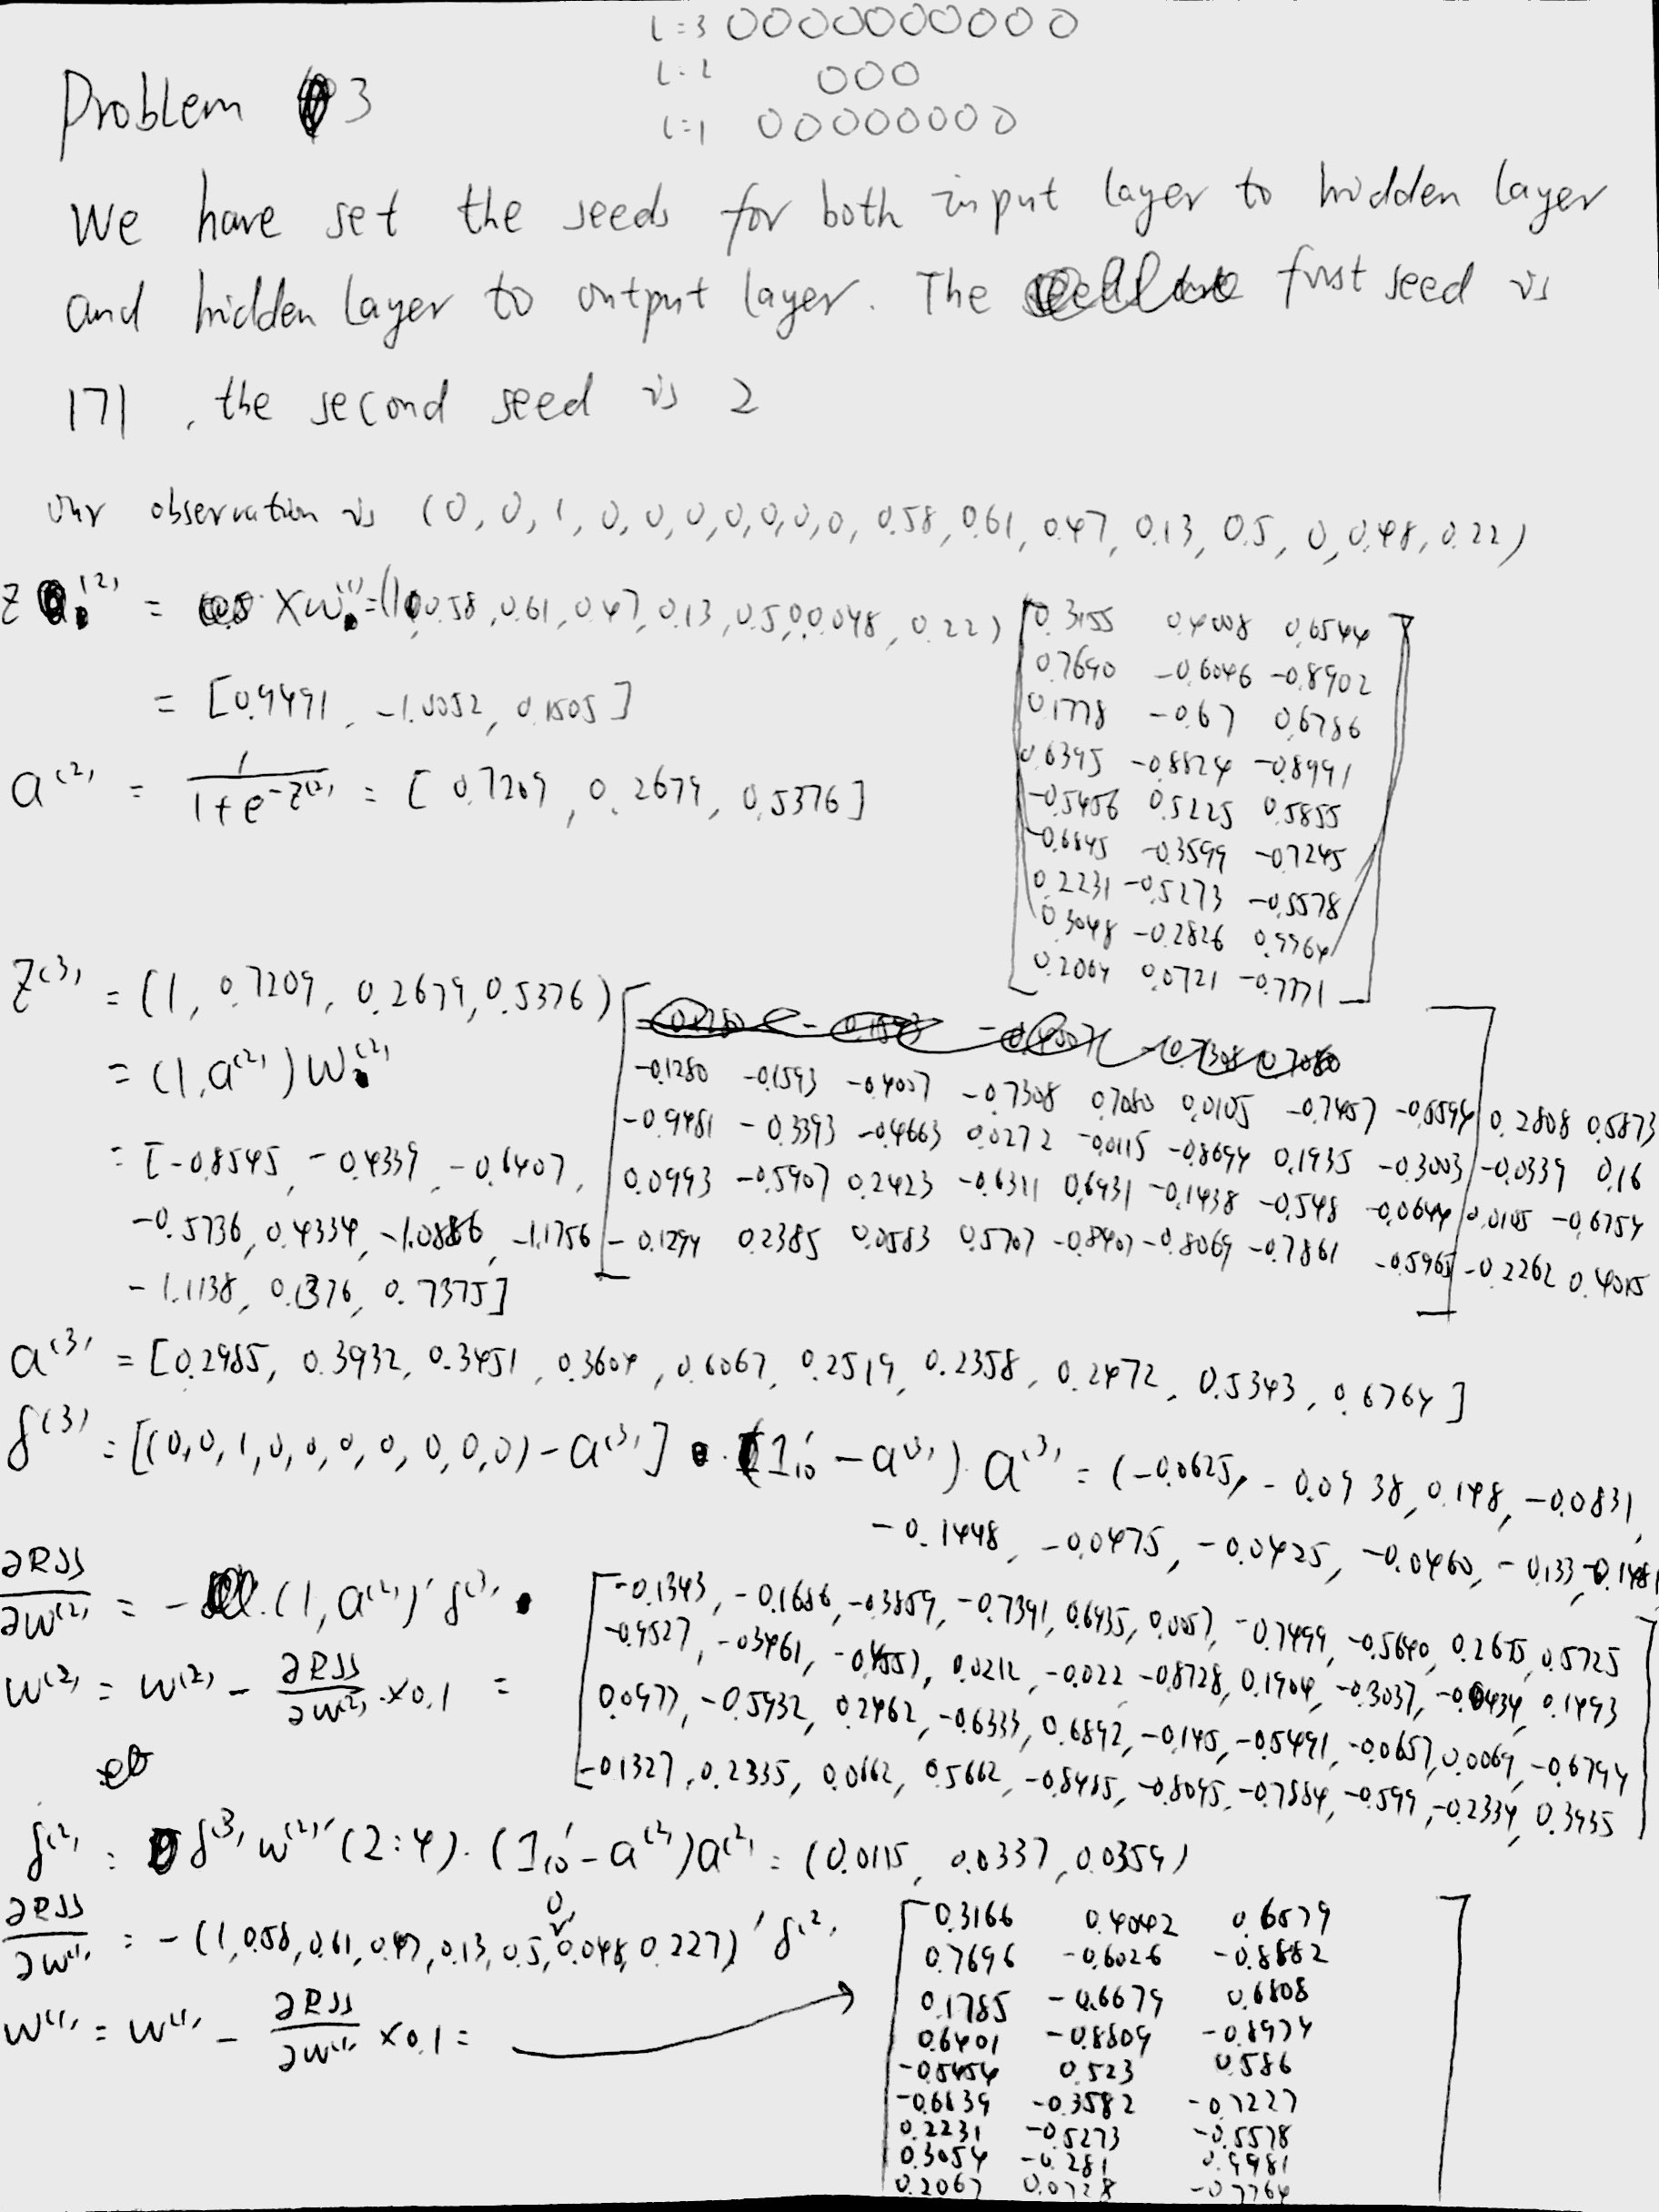 L=3 OOOOOOOOOO
L=2 OOO
L=1 OOOOOOOO
Problem 3
We have set the seeds for both input layer to hidden layer
and hidden layer to output layer. The first seed is
171, the second seed is 2
Our observation is (0, 0, 1, 0, 0, 0, 0, 0, 0, 0, 0.58, 0.61, 0.47, 0.13, 0.5, 0, 0.48, 0.22)
z^(2) = X w^(1) = (1, 0.58, 0.61, 0.47, 0.13, 0.5, 0, 0.48, 0.22)
0.3155 0.4008 0.6544
0.7690 -0.6046 -0.8902
0.1778 -0.67 0.6786
0.6395 -0.8824 -0.8991
-0.5456 0.5225 0.5855
-0.6645 -0.3599 -0.7245
0.2231 -0.5273 -0.5578
0.3048 -0.2826 0.9964
0.2064 0.0721 -0.7771
= [0.9491, -1.0052, 0.1505]
a^(2) = 1 / 1+e^-z^(2) = [0.7209, 0.2679, 0.5376]
z^(3) = (1, 0.7209, 0.2679, 0.5376)
= (1, a^(2)) w^(2)
-0.1280 -0.1593 -0.4007 -0.7308 0.7080 0.0105 -0.7457 -0.5594 0.2808 0.5873
-0.9481 -0.3393 -0.4663 0.0272 -0.0115 -0.8694 0.1935 -0.3003 -0.0339 0.16
0.0993 -0.5907 0.2423 -0.6311 0.6931 -0.1438 -0.548 -0.0644 0.0105 -0.6754
-0.1294 0.2385 0.0583 0.5707 -0.8407 -0.8069 -0.7861 -0.5965 -0.2262 0.4015
= [-0.8545, -0.4339, -0.6407,
-0.5736, 0.4334, -1.0886, -1.1756
-1.1138, 0.1376, 0.7375]
a^(3) = [0.2985, 0.3932, 0.3451, 0.3604, 0.6067, 0.2519, 0.2358, 0.2472, 0.5343, 0.6764]
δ^(3) = [(0,0,1,0,0,0,0,0,0,0) - a^(3)] · (1'₁₀ - a^(3)) · a^(3) = (-0.0625, -0.0938, 0.148, -0.0831,
-0.1448, -0.0475, -0.0425, -0.0460, -0.133, -0.1481)
∂RSS/∂w^(2) = - (1, a^(2))' δ^(3)
w^(2) = w^(2) - ∂RSS/∂w^(2) × 0.1 =
-0.1343, -0.1686, -0.3859, -0.7391, 0.6935, 0.0057, -0.7499, -0.5640, 0.2675, 0.5725
-0.9527, -0.3461, -0.4557, 0.0212, -0.022 -0.8728, 0.1904, -0.3037, -0.0434, 0.1493
0.0977, -0.5932, 0.2462, -0.6333, 0.6892, -0.145, -0.5491, -0.0657, 0.0069, -0.6794
-0.1327, 0.2335, 0.0662, 0.5662, -0.8485, -0.8095, -0.7884, -0.599, -0.2334, 0.3935
δ^(2) = δ^(3) w^(2)' (2:4) · (1'₁₀ - a^(2)) a^(2) = (0.0115, 0.0337, 0.0359)
∂RSS/∂w^(1) = - (1, 0.58, 0.61, 0.47, 0.13, 0.5, 0, 0.048, 0.227)' δ^(2)
w^(1) = w^(1) - ∂RSS/∂w^(1) × 0.1 =
0.3166 0.4042 0.6579
0.7696 -0.6026 -0.8882
0.1785 -0.6679 0.6808
0.6401 -0.8809 -0.8974
-0.5454 0.523 0.586
-0.6639 -0.3582 -0.7227
0.2231 -0.5273 -0.5578
0.3054 -0.281 0.9981
0.2067 0.0728 -0.7764